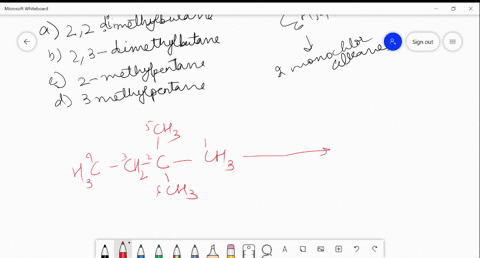 Microsoft Whiteboard
Sign out
a) 2,2 dimethylbutane
b) 2,3-dimethylbutane
c) 2-methylpentane
d) 3 methylpentane
↓
2 monochloro
alkane
5CH3
H3C4 - 3CH2 - 2C - 1CH3 →
CH3